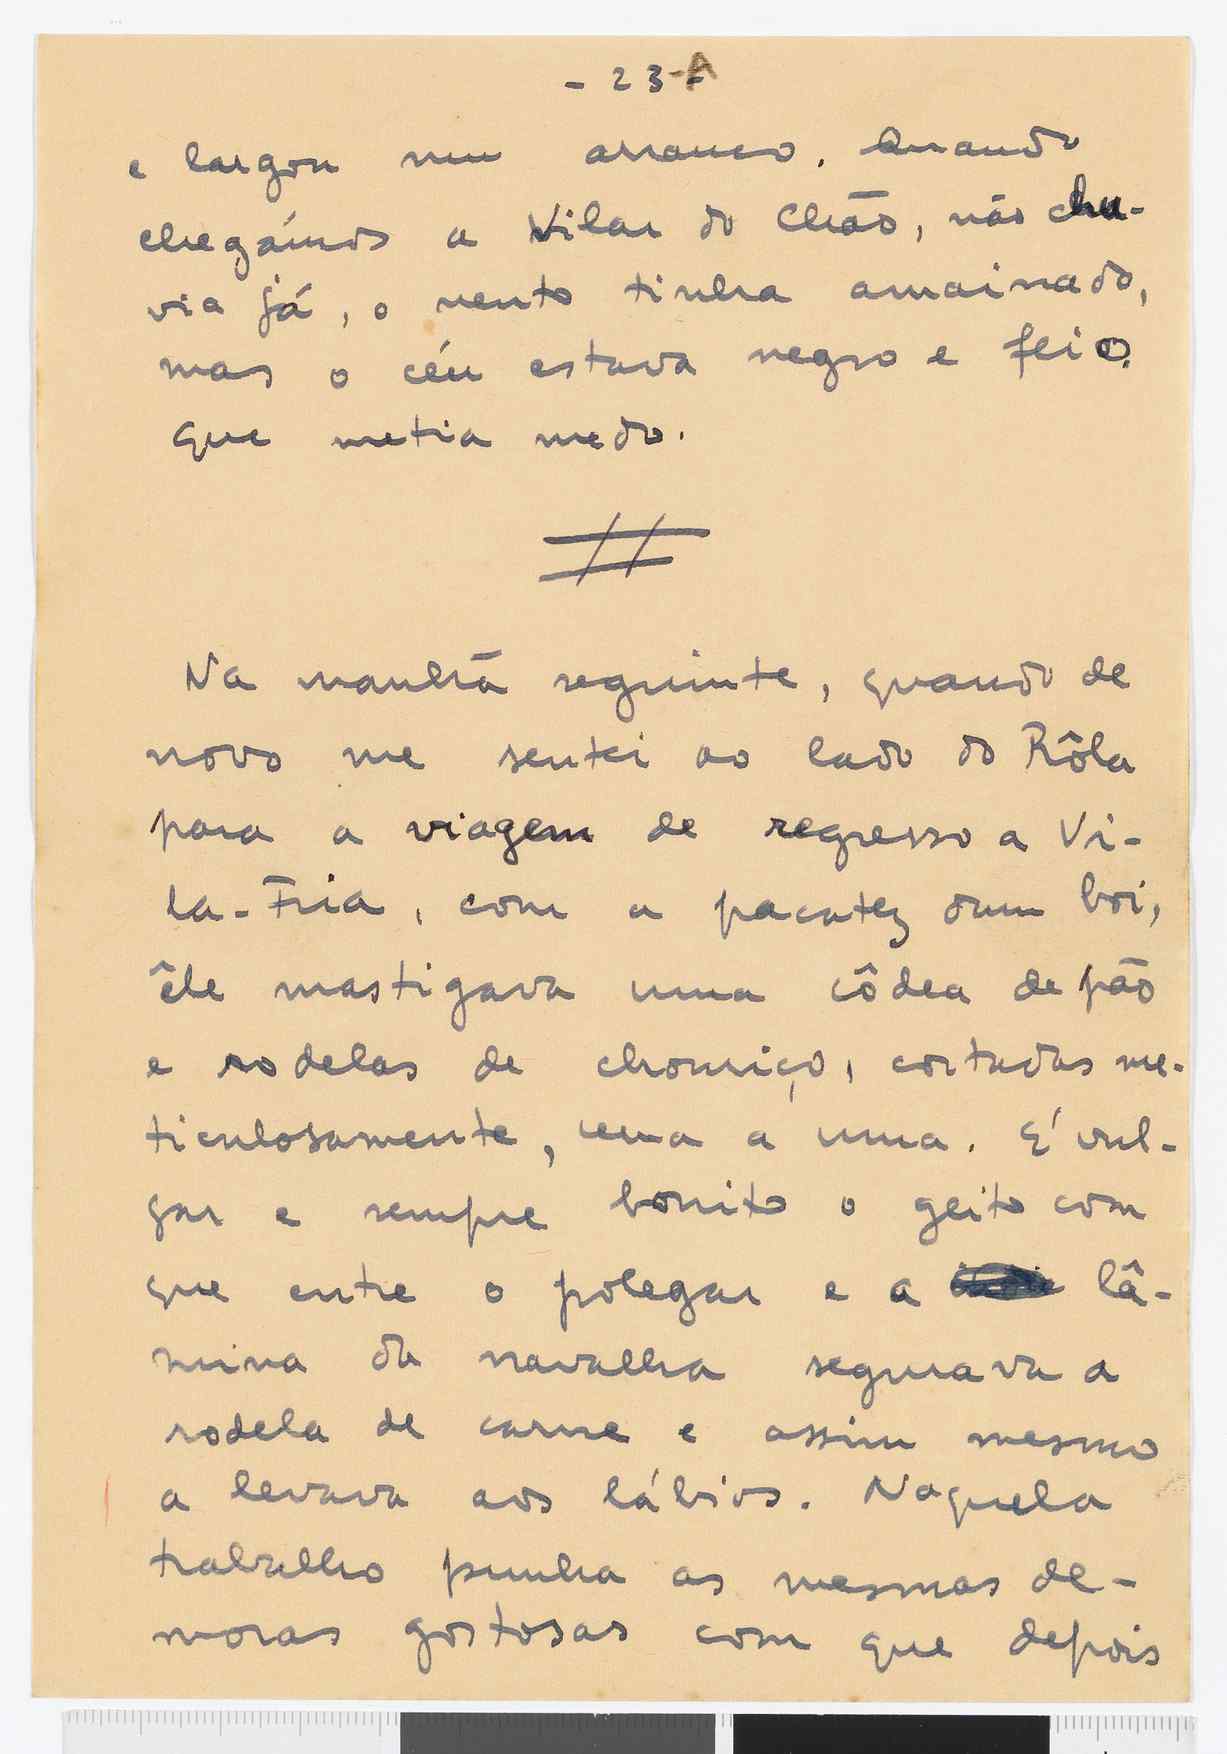 - 23-A
e largou num arranco. Quando
chegámos a Vilar do Chão, não chu-
via já, o vento tinha amainado,
mas o céu estava negro e feio
que metia medo.
Na manhã seguinte, quando de
novo me sentei ao lado do Rôla
para a viagem de regresso a Vi-
la-Fria, com a pacatez dum boi,
êle mastigava uma côdea de pão
e rodelas de chouriço, cortadas me-
ticulosamente, uma a uma. É vul-
gar e sempre bonito o geito com
que entre o polegar e a lâ-
mina da navalha segurava a
rodela de carne e assim mesmo
a levava aos lábios. Naquela
trabalho punha as mesmas de-
moras gostosas com que depois